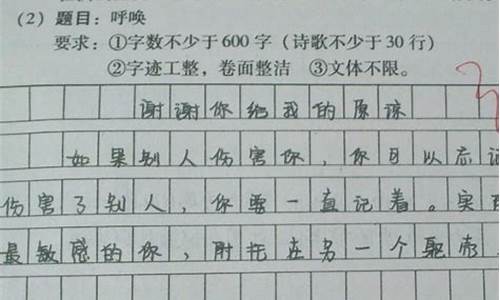 (2) 题目：呼唤
要求：①字数不少于600字（诗歌不少于30行）
②字迹工整，卷面整洁 ③文体不限。
谢谢你给我的原谅
如果别人伤害你，你可以忘记
伤害了别人，你要一直记着。实
最敏感的你，附托在另一个躯壳